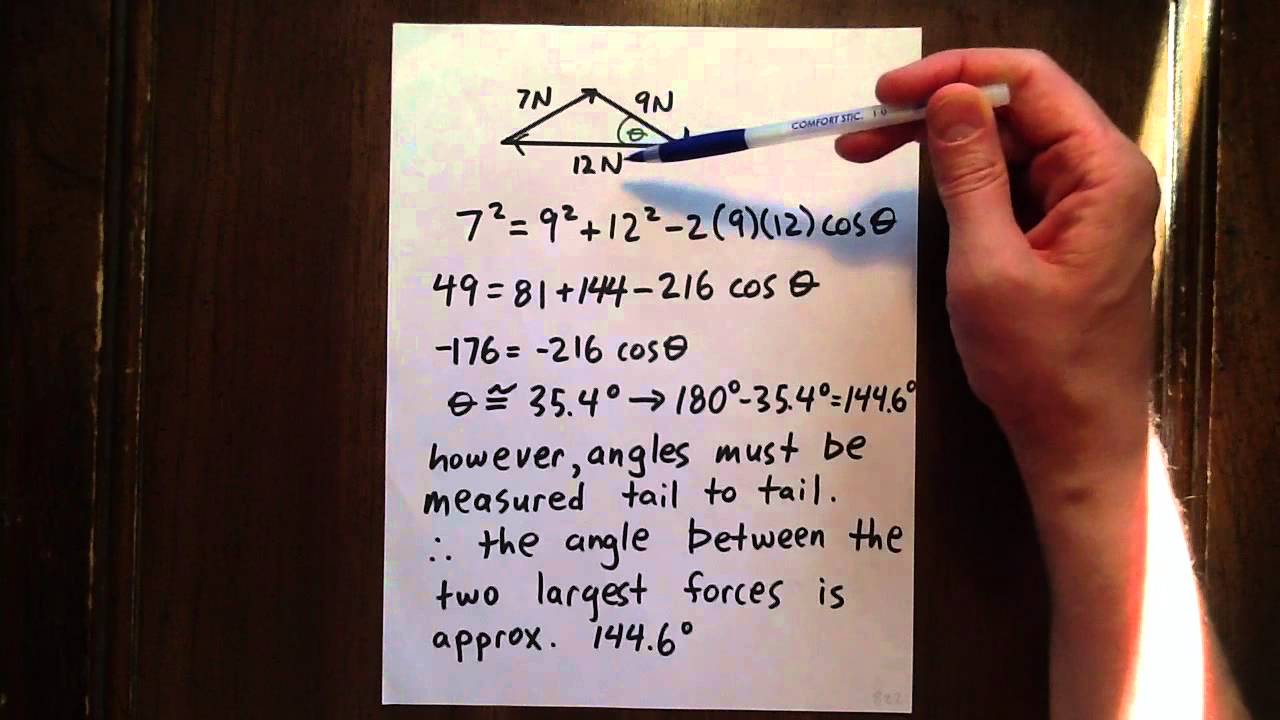 7N
9N
θ
12N
7² = 9² + 12² - 2(9)(12) cosθ
49 = 81 + 144 - 216 cos θ
-176 = -216 cosθ
θ ≅ 35.4° → 180° - 35.4° = 144.6°
however, angles must be
measured tail to tail.
∴ the angle between the
two largest forces is
approx. 144.6°
COMFORT STIC.